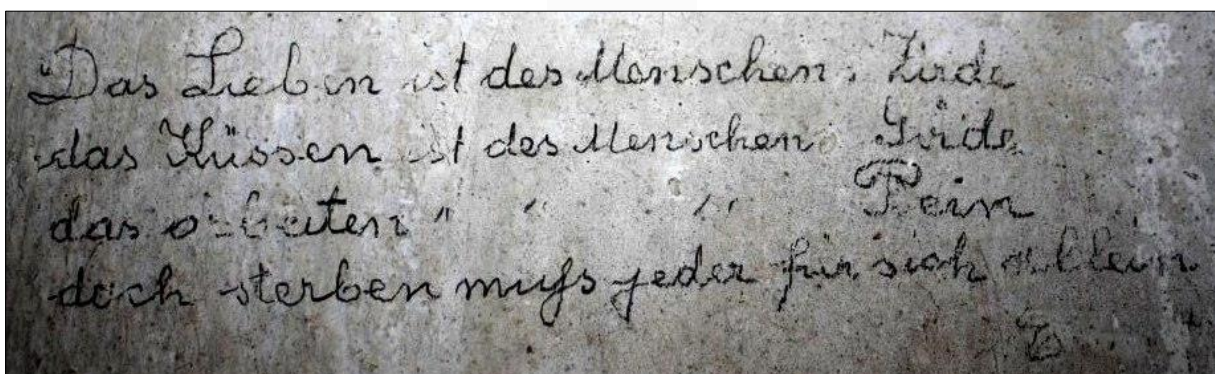 "Das Lieben ist des Menschen Zirde
das Küssen ist des Menschen Girde
das arbeiten " " " Pein
doch sterben mufs jeder für sich allein